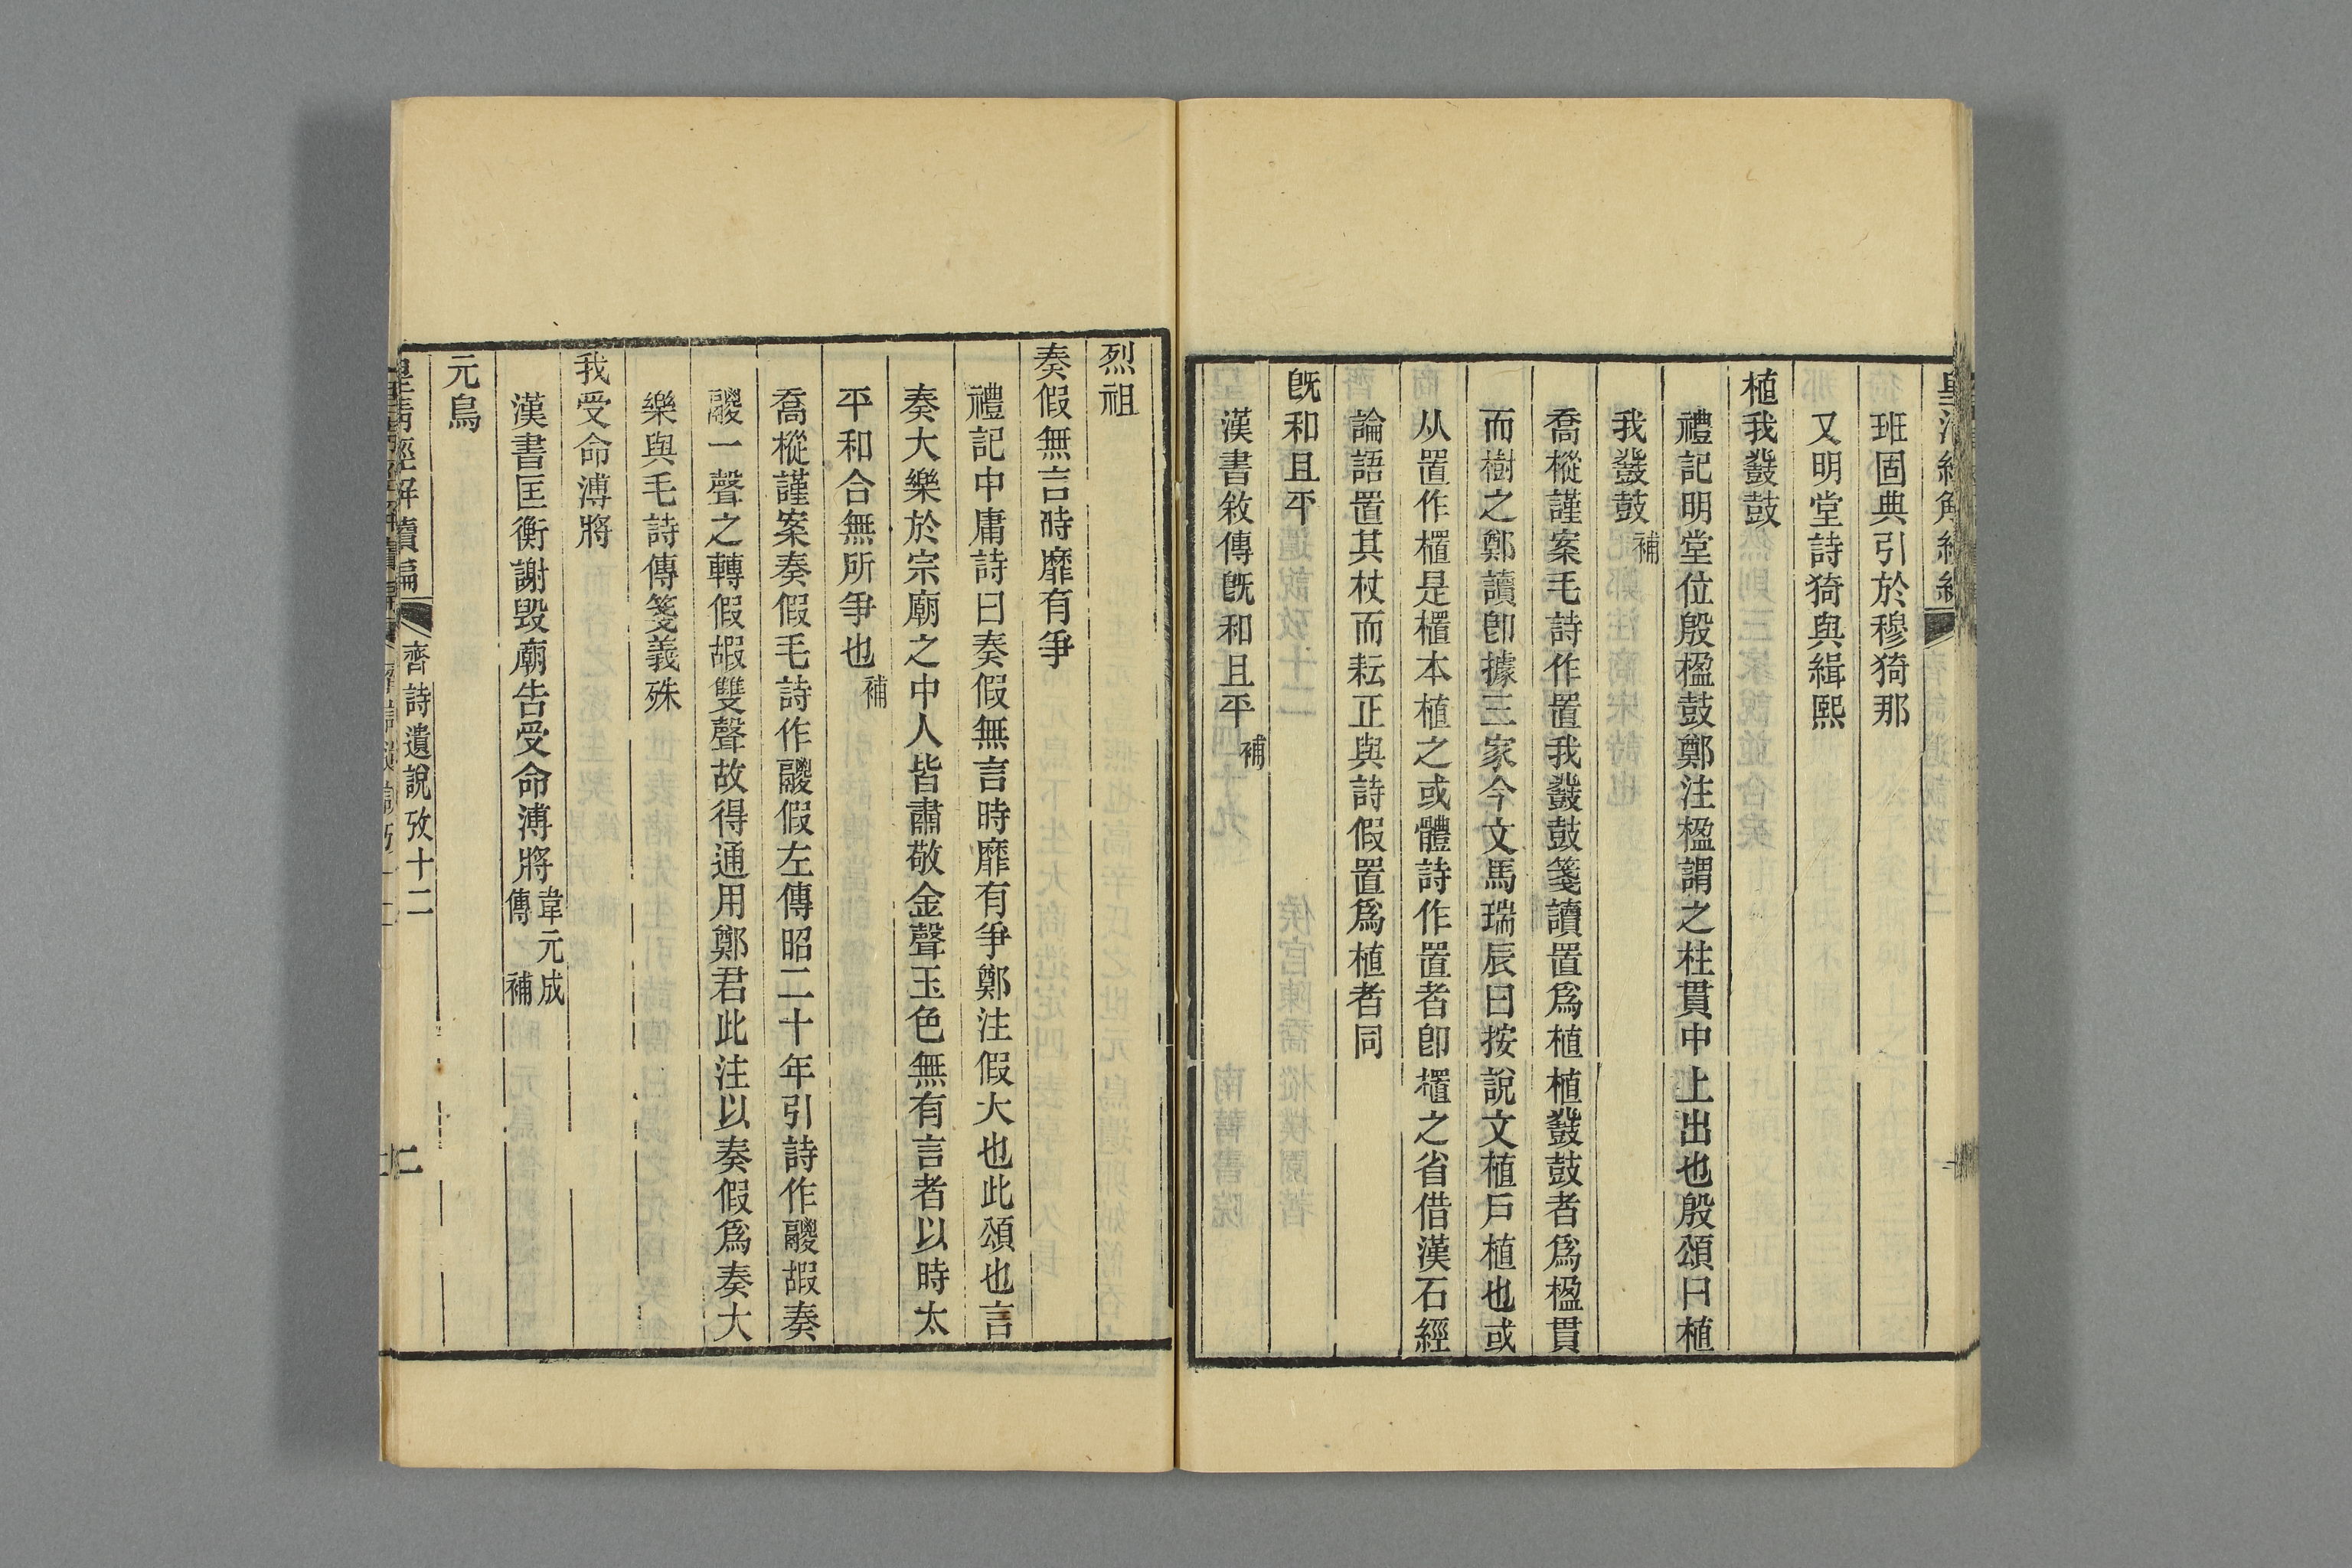 班固典引於穆猗那
又明堂詩猗與緝熙
植我鼗鼓
禮記明堂位殷楹鼓鄭注楹謂之柱貫中上出也殷頌曰植
我鼗鼓補
喬樅謹案毛詩作置我鼗鼓箋讀置爲植植鼗鼓者爲楹貫
而樹之鄭讀卽據三家今文馬瑞辰曰按說文植戶植也或
从置作櫃是櫃本植之或體詩作置者卽櫃之省借漢石經
論語置其杖而耘正與詩假置爲植者同
旣和且平
漢書敘傳旣和且平補
烈祖
奏假無言時靡有爭
禮記中庸詩曰奏假無言時靡有爭鄭注假大也此頌也言
奏大樂於宗廟之中人皆肅敬金聲玉色無有言者以時太
平和合無所爭也補
喬樅謹案奏假毛詩作鬷假左傳昭二十年引詩作鬷嘏奏
鬷一聲之轉假嘏雙聲故得通用鄭君此注以奏假爲奏大
樂與毛詩傳箋義殊
我受命溥將
漢書匡衡謝毀廟告受命溥將韋元成傳補
元鳥
皇清經解續編 齊詩遺說攷十二 二